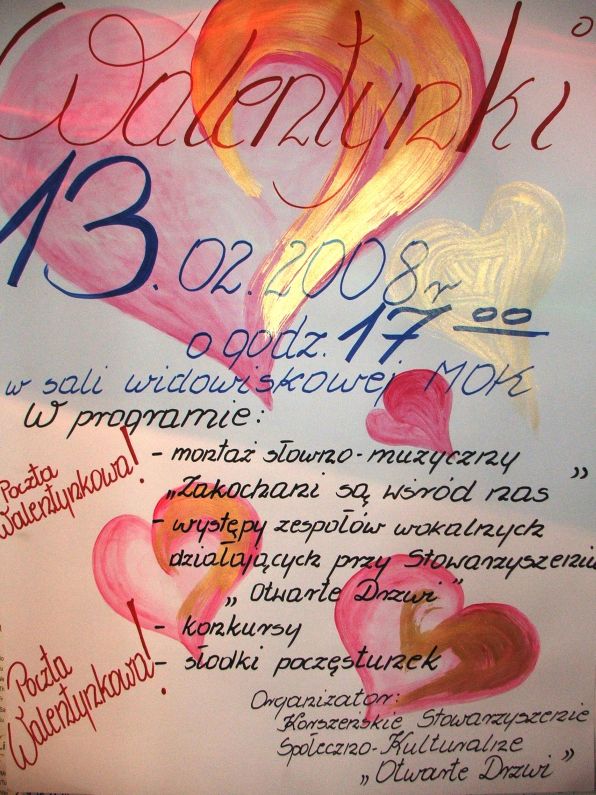 Walentynki
13.02.2008 r
o godz. 17 00
w sali widowiskowej MOK
W programie:
- montaż słowno-muzyczny
„Zakochani są wśród nas”
- występy zespołów wokalnych
działających przy Stowarzyszeniu
„Otwarte Drzwi”
- konkursy
- słodki poczęstunek
Poczta
Walentynkowa!
Poczta
Walentynkowa!
Organizator:
Korszeńskie Stowarzyszenie
Społeczno-Kulturalne
„Otwarte Drzwi”